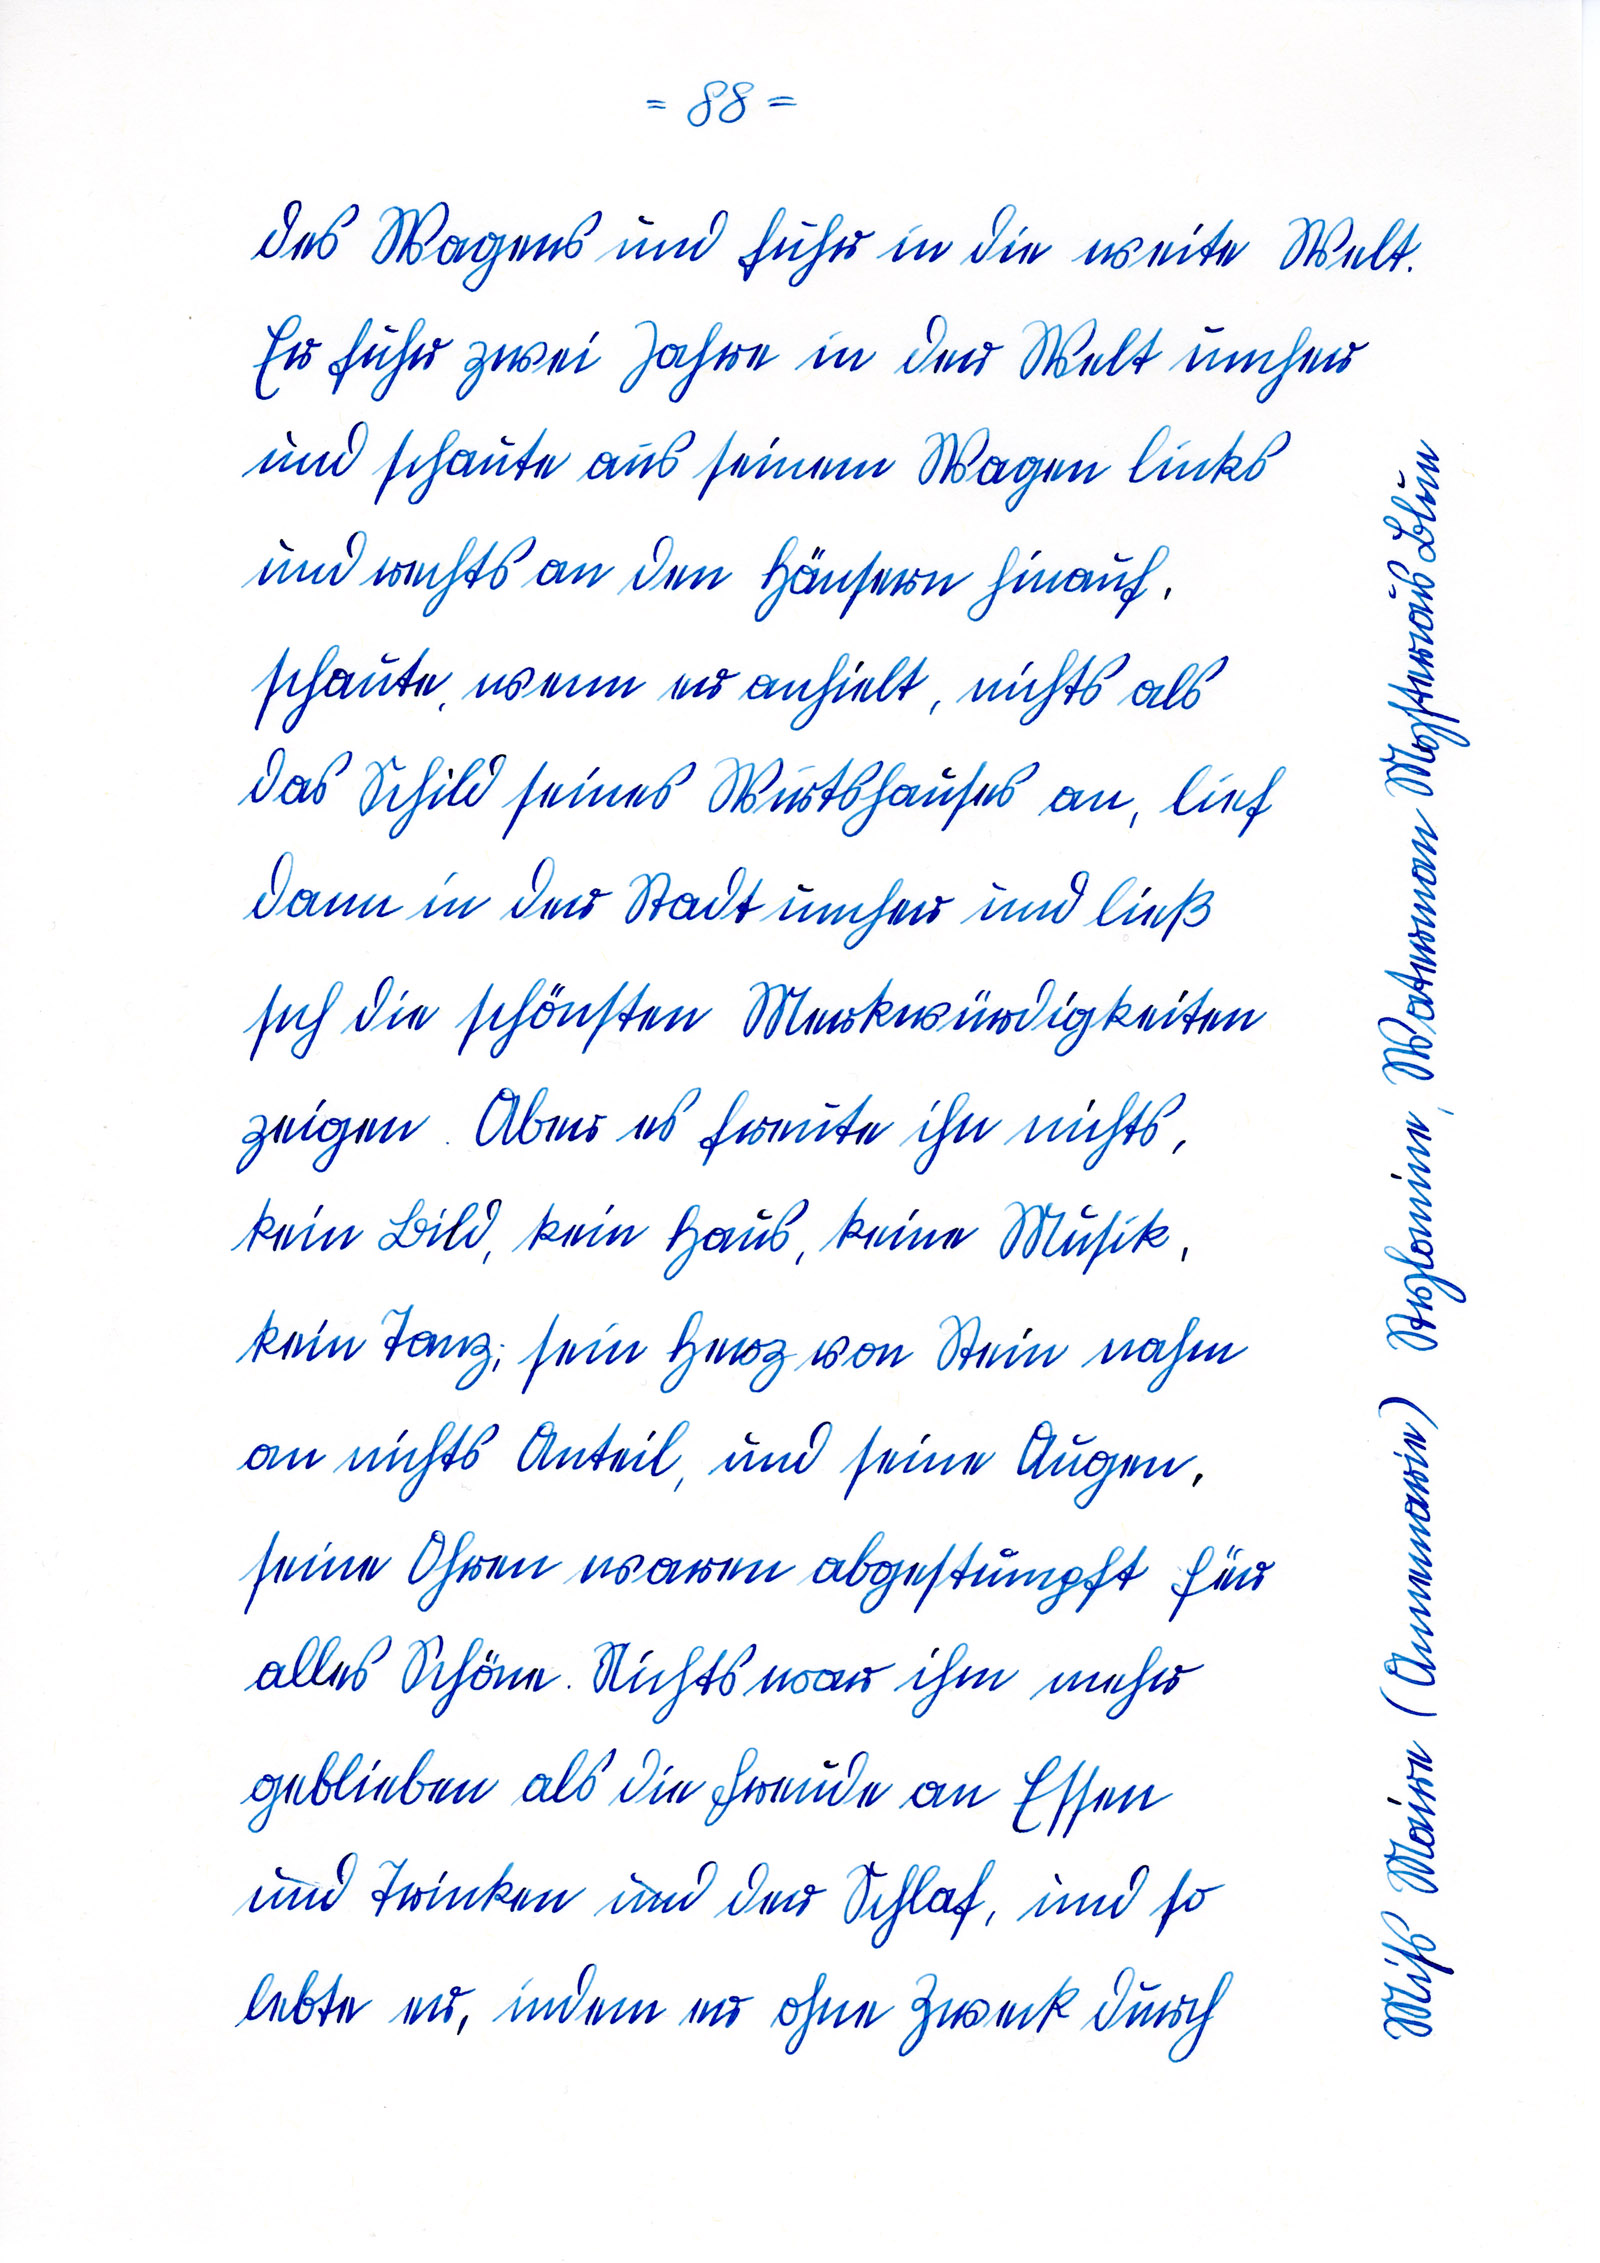 = 88 =
des Wagens und fuhr in die weite Welt.
Er fuhr zwei Jahre in der Welt umher
und schaute aus seinem Wagen links
und rechts an den Häusern hinauf,
schaute, wenn er anhielt, nichts als
das Schild seines Wirtshauses an, lief
dann in der Stadt umher und ließ
sich die schönsten Merkwürdigkeiten
zeigen. Aber es freute ihn nichts,
kein Bild, kein Haus, keine Musik,
kein Tanz; sein Herz von Stein nahm
an nichts Anteil, und seine Augen,
seine Ohren waren abgestumpft für
alles Schöne. Nichts war ihm mehr
geblieben als die Freude an Essen
und Trinken und der Schlaf, und so
lebte er, indem er ohne Zweck durch
Miss Maire (Annemarie) Stylomine, Waterman Mysterious Blue